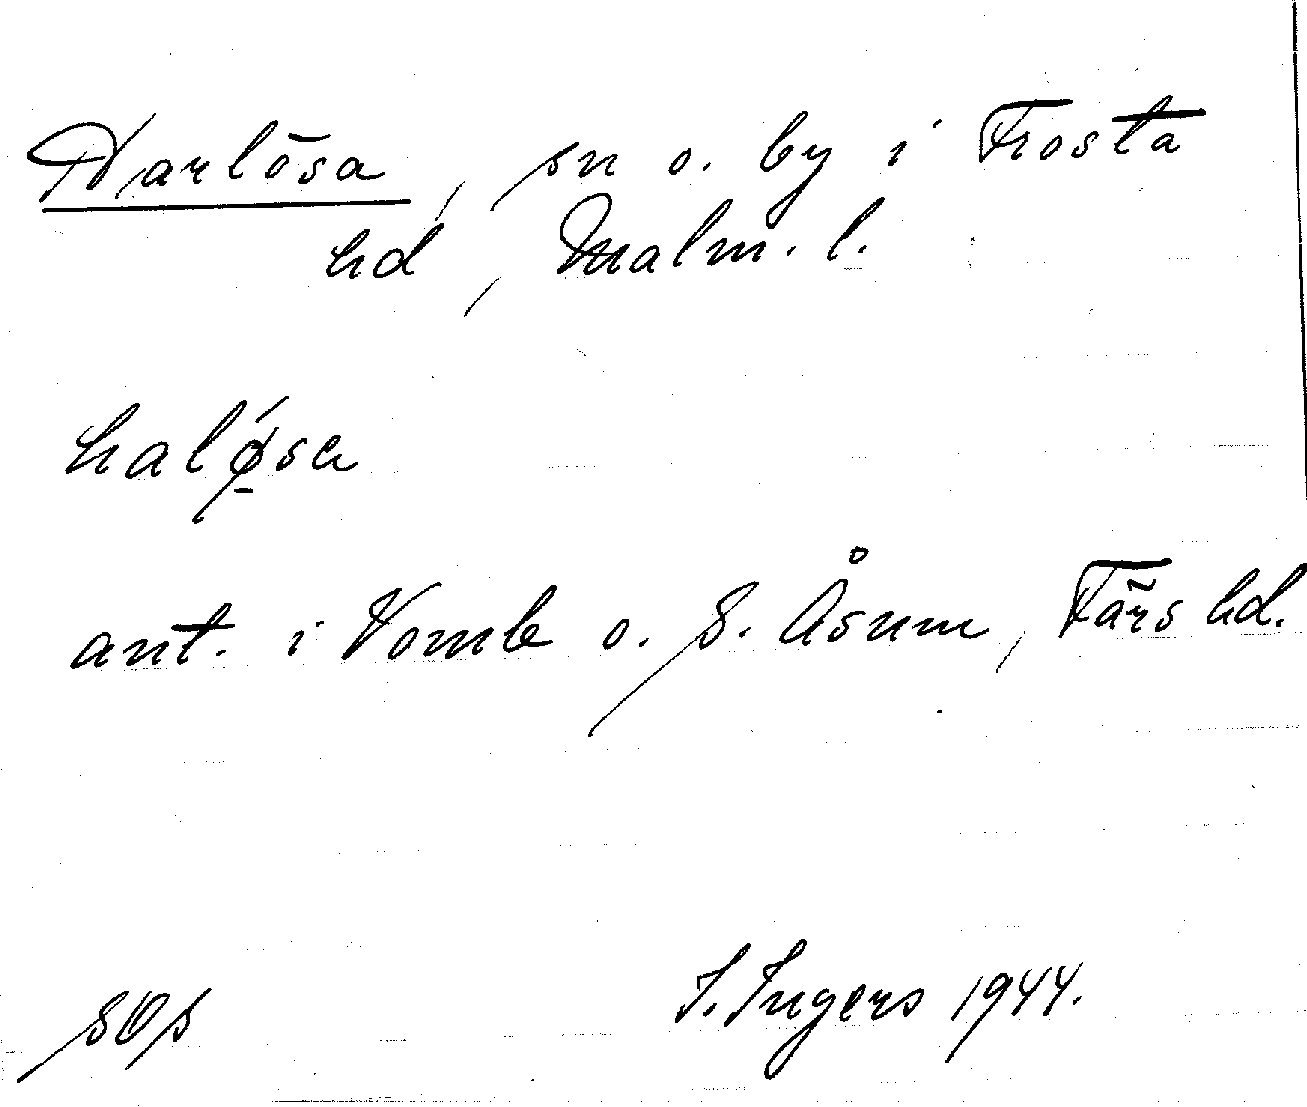 Harlösa, sn o. by i Frosta
hd, Malm. l.
halǿ̱sa
ant. i Vomb o. S. Åsum, Färs hd.
sOs I. Ingers 1944.